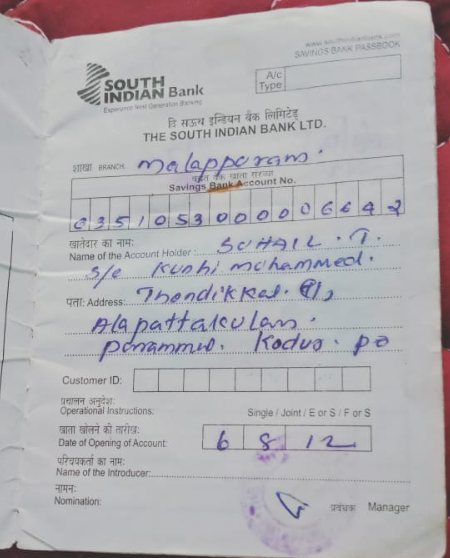 www.southindianbank.com
SAVINGS BANK PASSBOOK
SOUTH
INDIAN Bank
Experience Next Generation Banking
A/c
Type
दि साउथ इन्डियन बैंक लिमिटेड
THE SOUTH INDIAN BANK LTD.
शाखा BRANCH malappuram.
बचत बैंक खाता संख्या
Savings Bank Account No.
0351053000006642
खातेदार का नाम:
Name of the Account Holder: SUHAIL. T.
S/o Kunhi mohammed.
पता: Address: Thondikkal (H),
Alapattakulam.
ponammed. Kodur. po
Customer ID:
प्रचालन अनुदेश:
Operational Instructions: Single / Joint / E or S / F or S
खाता खोलने की तारीख:
Date of Opening of Account: 6 8 12
परिचयकर्ता का नाम:
Name of the Introducer:
नामन:
Nomination:
प्रबंधक Manager